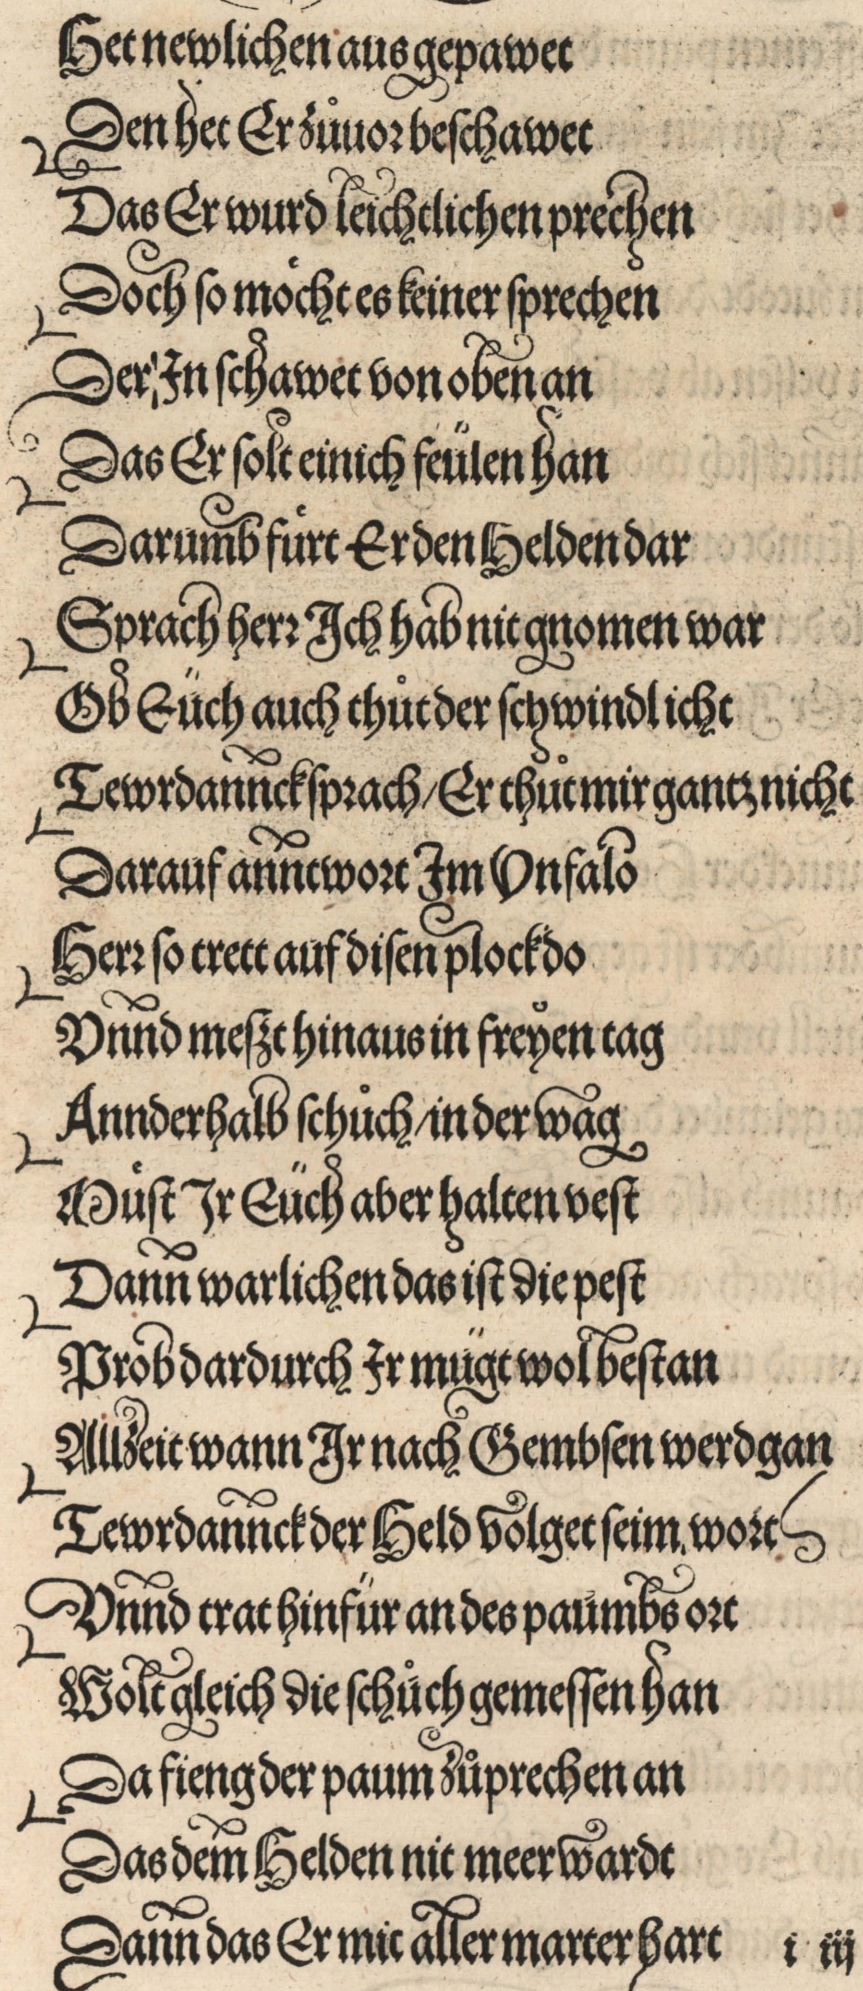 Het newlichen aus gepawet
Den het Er zůuor beschawet
Das Er wurd leichtlichen prechen
Doch so möcht es keiner sprechen
Der, In schawet von oben an
Das Er solt einich feülen han
Darumb fürt Er den Helden dar
Sprach herr Ich hab nit gnomen war
Ob Eüch auch thůt der schwindl icht
Tewrdannck sprach / Er thůt mir gantz nicht
Darauf anntwort Im Vnfalo
Herr so trett auf disen plock do
Vnnd meszt hinaus in freyen tag
Annderhalb schůch / in der wag
Müst Ir Eüch aber halten vest
Dann warlichen das ist die pest
Prob dardurch Ir mügt wol bestan
Allzeit wann Ir nach Gembsen werd gan
Tewrdannck der Held volget seim wort
Vnnd trat hinfür an des paumbs ort
Wolt gleich die schůch gemessen han
Da fieng der paum zůprechen an
Das dem Helden nit meer wardt
Dann das Er mit aller marter hart
i iij